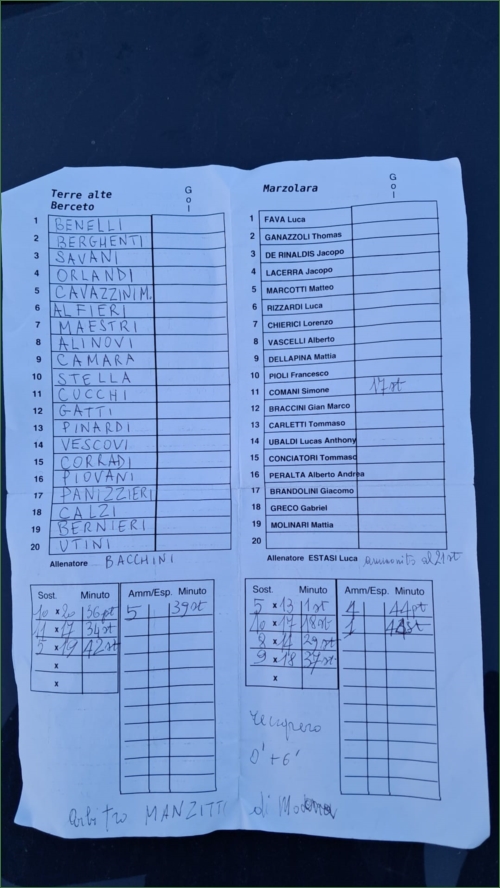 Terre alte
Berceto
Gol
1 BENELLI
2 BERGHENTI
3 SAVANI
4 ORLANDI
5 CAVAZZINI M.
6 ALFIERI
7 MAESTRI
8 ALINOVI
9 CAMARA
10 STELLA
11 CUCCHI
12 GATTI
13 PINARDI
14 VESCOVI
15 CORRADI
16 PIOVANI
17 PANIZZIERI
18 CALZI
19 BERNIERI
20 UTINI
Allenatore BACCHINI
Sost. Minuto
x 20 36pt
x 17 34st
5 x 19 42st
x
x
Amm/Esp. Minuto
5 39st
Marzolara
Gol
1 FAVA Luca
2 GANAZZOLI Thomas
3 DE RINALDIS Jacopo
4 LACERRA Jacopo
5 MARCOTTI Matteo
6 RIZZARDI Luca
7 CHIERICI Lorenzo
8 VASCELLI Alberto
9 DELLAPINA Mattia
10 PIOLI Francesco
11 COMANI Simone 17st
12 BRACCINI Gian Marco
13 CARLETTI Tommaso
14 UBALDI Lucas Anthony
15 CONCIATORI Tommaso
16 PERALTA Alberto Andrea
17 BRANDOLINI Giacomo
18 GRECO Gabriel
19 MOLINARI Mattia
20
Allenatore ESTASI Luca ammonito al 21st
Sost. Minuto
5 x 13 1st
x 17 18st
29st
9 x 18 37st
x
Amm/Esp. Minuto
4 44pt
1 44st
recupero
0'+6'
Arbitro MANZITTI di Modena